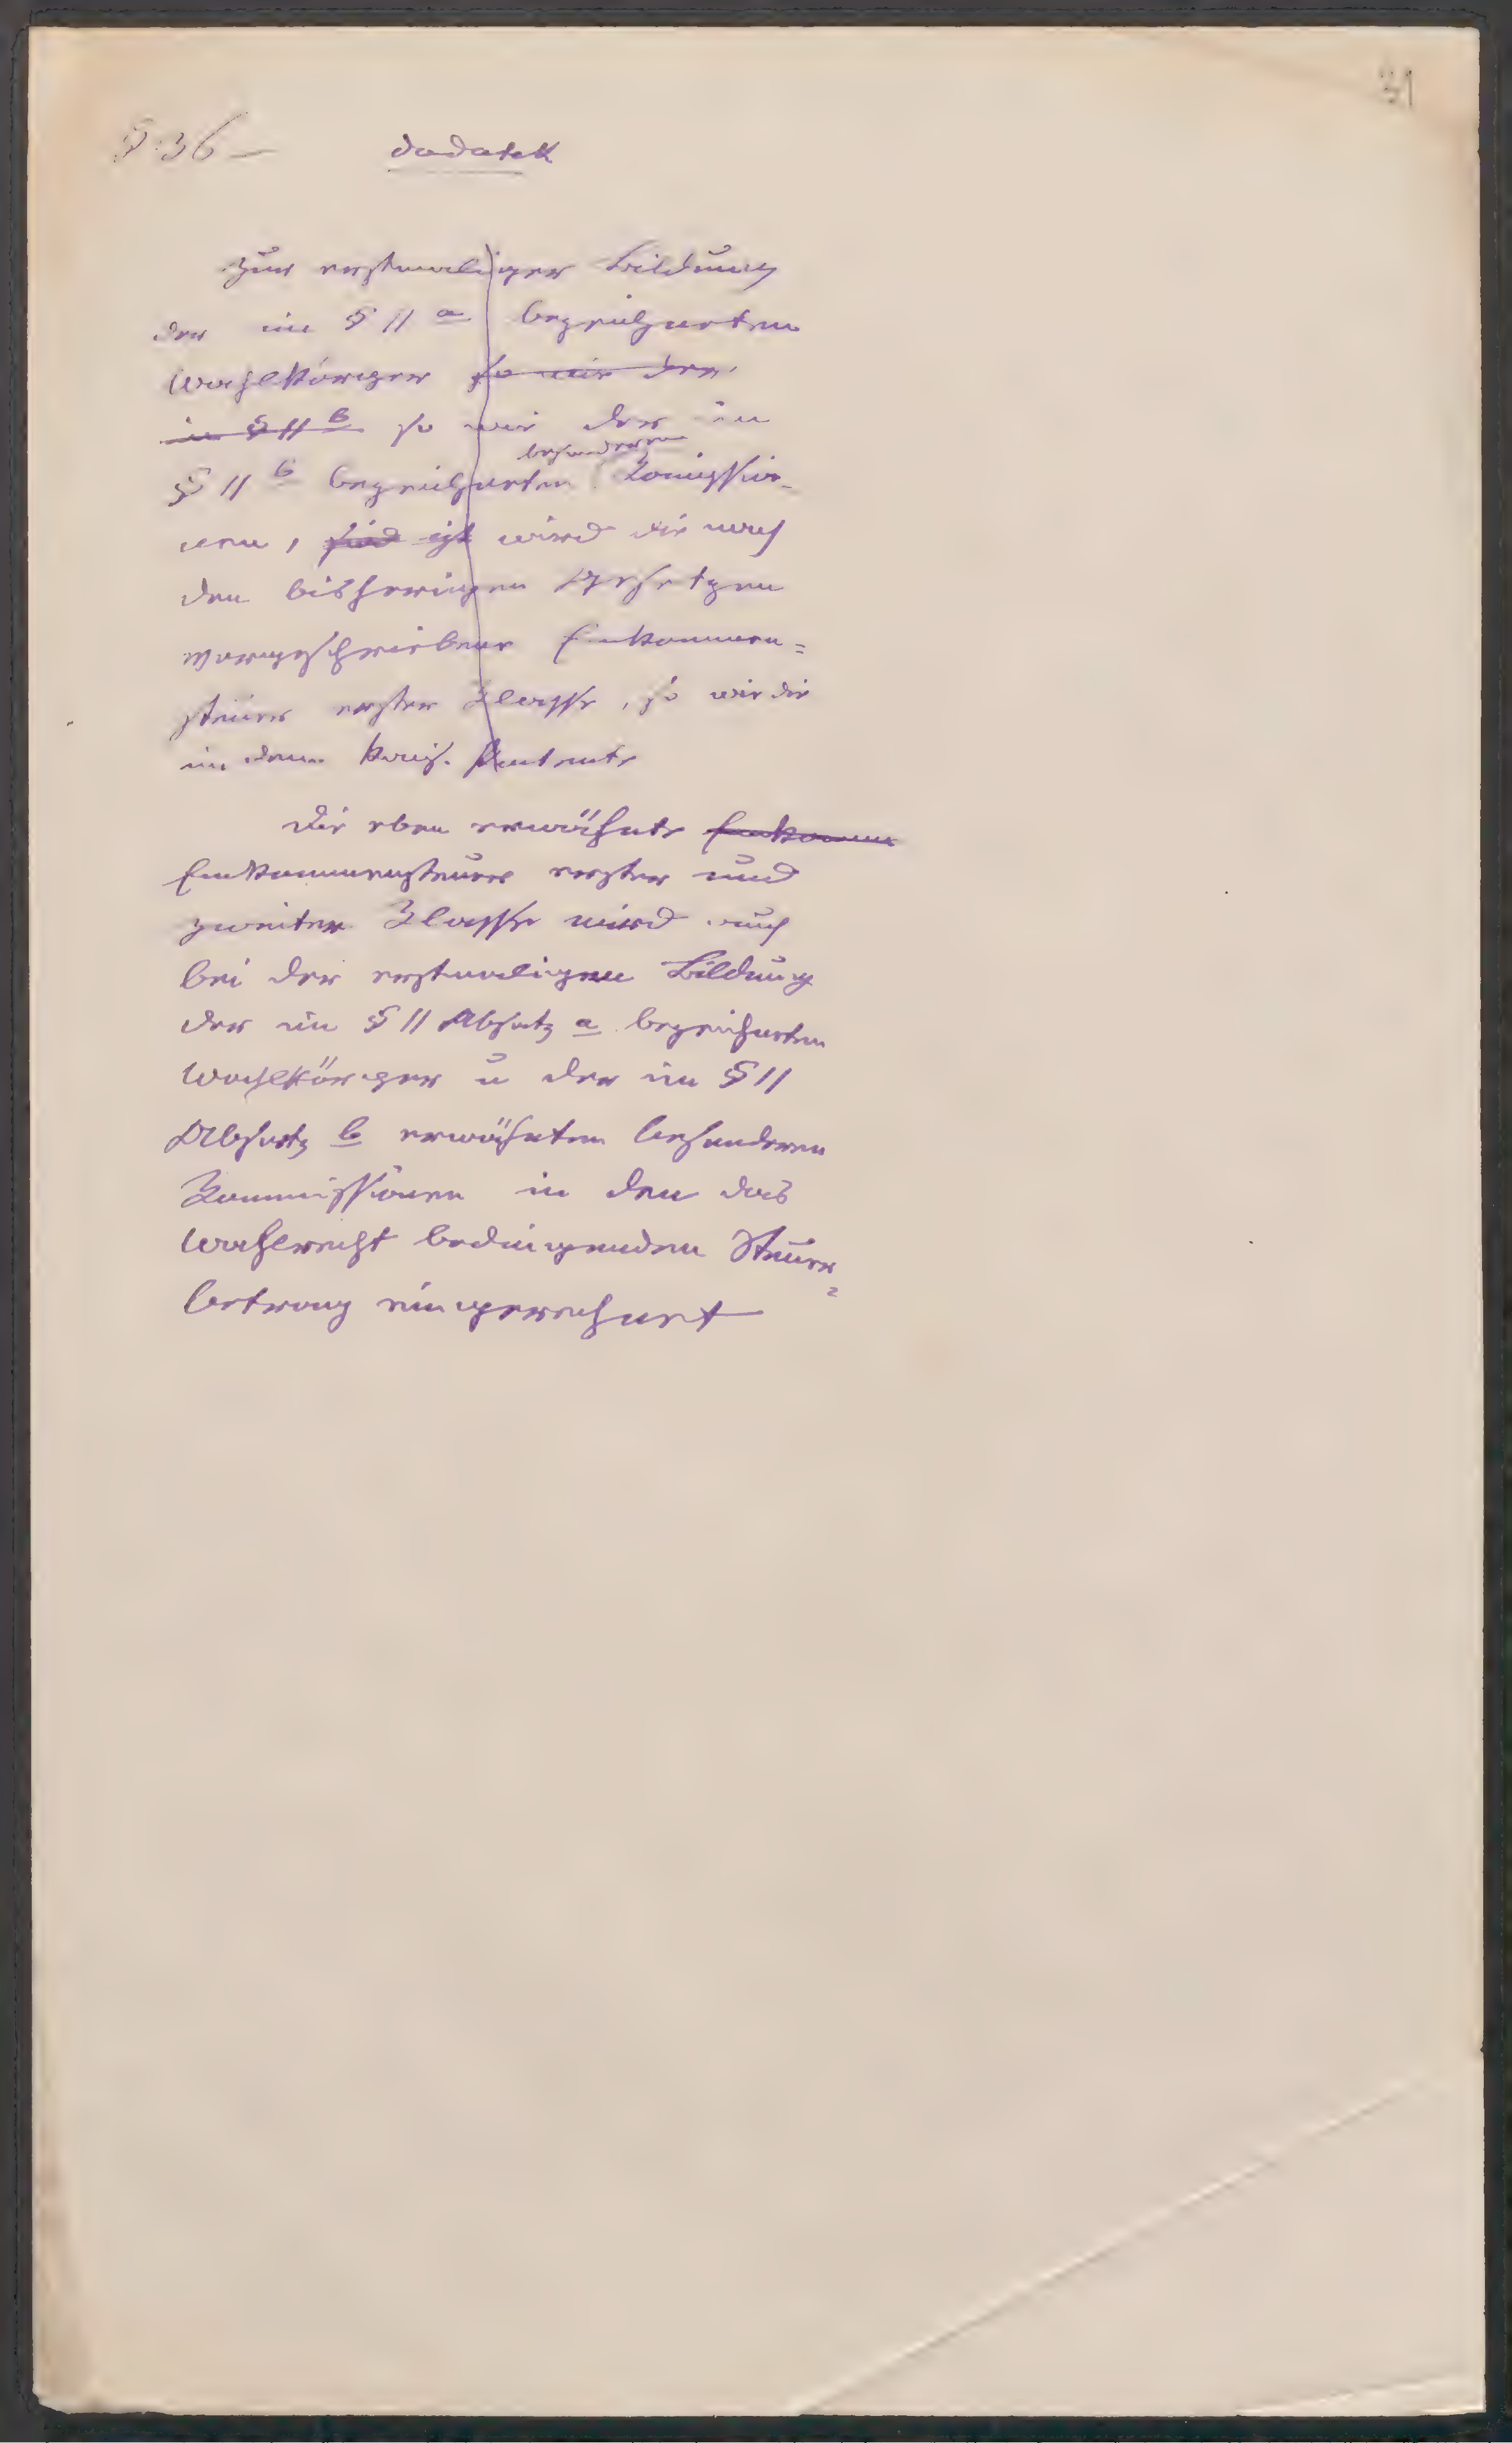 31
§ 36 –
dodatek
Zur erstmaliger Bildung
der im § 11 a bezeichneten
Wahlkörper so wie der
in § 11 b so wie der in
besonderen
§ 11 b bezeichneten Komissio-
nen, sind ist wird die nach
den bisherigen Gesetzen
vorgeschriebene Einkommen=
steuer erster Klasse, so wie die
in dem kais. Patente
Die oben erwähnte Einkomm
Einkommensteuer erster und
zweiter Klasse wird auch
bei der erstmaligen Bildung
der im § 11 Absatz a bezeichneten
Wahlkörper u der im § 11
Absatz b erwähnten besonderen
Kommissionen in den das
Wahlrecht bedingenden Steuer=
betrag eingerechnet